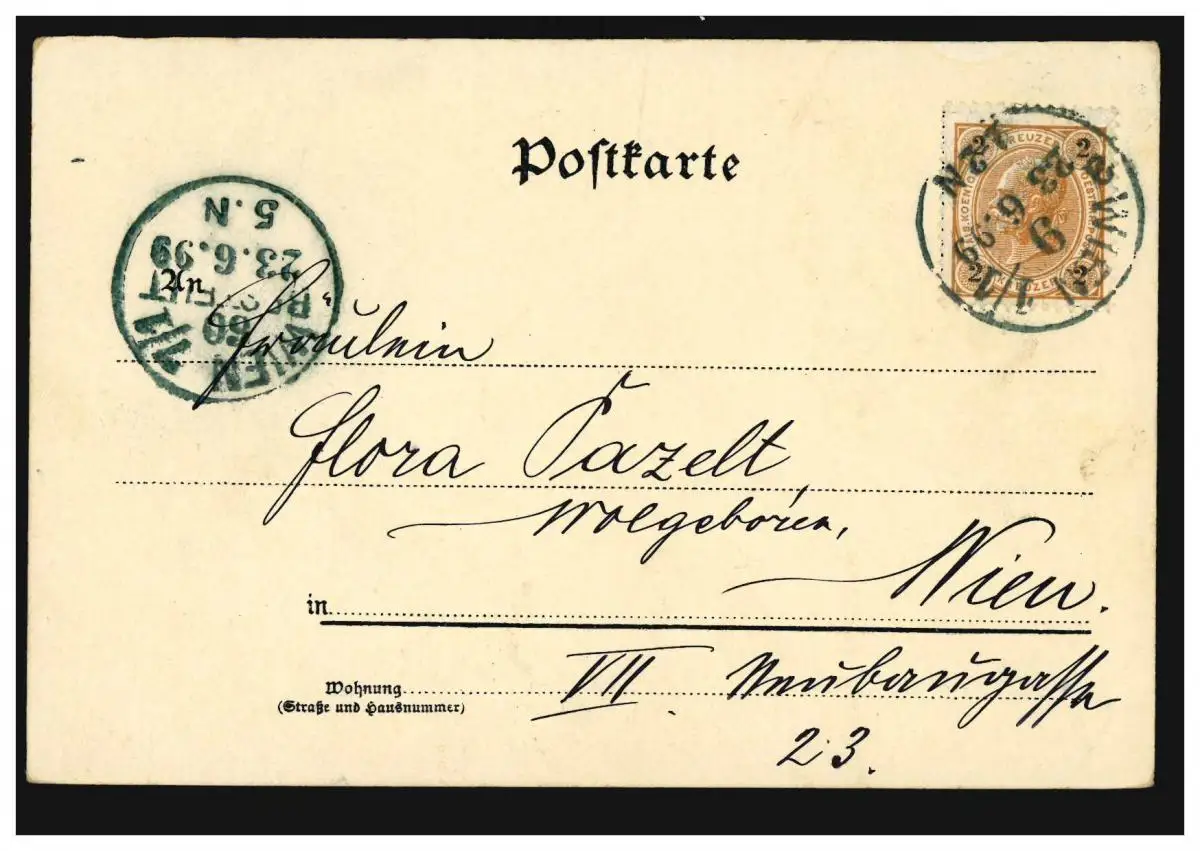 Postkarte
2 KREUZER 2
2 KREUZER 2
WIEN 1/1
23 6 99
12N
WIEN 1/1
60
BESTELLT
23.6.99
5.N
An
Fräulein
Flora Pazelt,
Wolgeboren,
Wien.
in
VII Neubaugasse
Wohnung
(Straße und Hausnummer)
23.